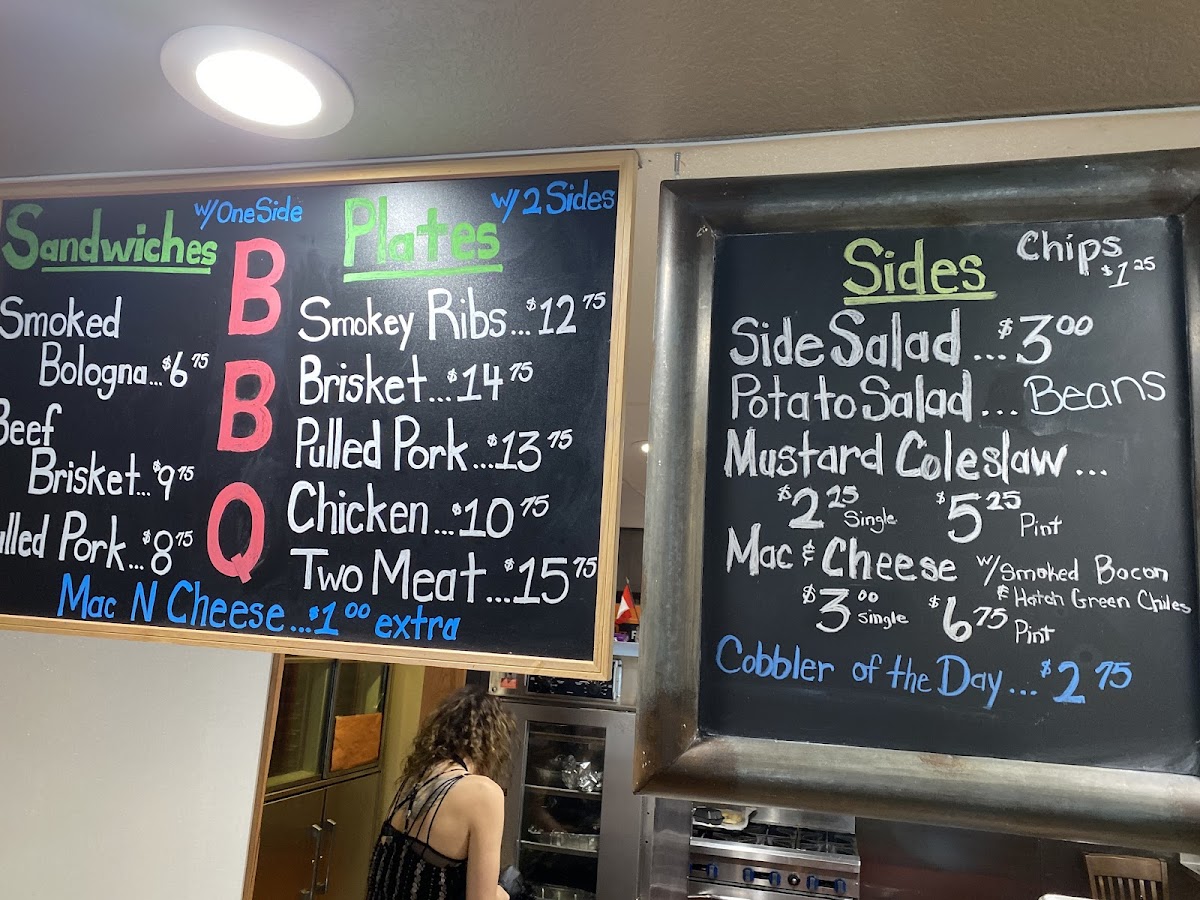 Sandwiches
w/ One Side
Smoked
Bologna...$6 75
Beef
Brisket...$9 75
Pork...$8 75
B
B
Q
Plates
w/ 2 Sides
Smokey Ribs...$12 75
Brisket...$14 75
Pulled Pork...$13 75
Chicken...$10 75
Two Meat...$15 75
Mac N Cheese...$1 00 extra
Sides
Chips
$1 25
Side Salad...$3 00
Potato Salad...Beans
Mustard Coleslaw...
$2 25 Single $5 25 Pint
Mac & Cheese w/ Smoked Bacon
& Hatch Green Chiles
$3 00 Single $6 75 Pint
Cobbler of the Day...$2 75